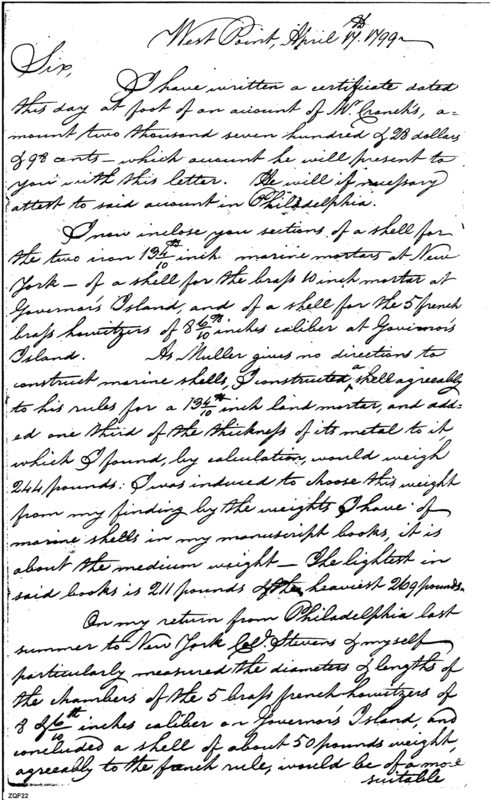 West Point, April 17th. 1799
Sir,
I have written a certificate dated
this day at foot of an account of Mr. Cranch's, a-
mount two thousand seven hundred & 28 dollars
& 98 cents – which account he will present to
you with this letter. He will if necessary
attest to said account in Philadelphia.
I now inclose you sections of a shell for
the two iron 13 4/10th inch marine mortars at New
York – of a shell for the brass 10 inch mortar at
Governor's Island, and of a shell for the 5 french
brass howitzers of 8 6/10th inches caliber at Governor's
Island. As Muller gives no directions to
construct marine shells, I constructed a shell agreeably
to his rules for a 13 4/10th inch land mortar, and add-
ed one third of the thickness of its metal to it,
which I found, by calculation, would weigh
244 pounds: I was induced to choose this weight
from my finding by the weights I have of
marine shells in my manuscript books, it is
about the medium weight – The lightest in
said books is 211 pounds & the heaviest 269 pounds.
On my return from Philadelphia last
summer to New York Col. Stevens & myself
particularly measured the diameters & lengths of
the chambers of the 5 brass french howitzers of
8 & 6/10th inches caliber on Governor's Island, and
concluded a shell of about 50 pounds weight,
agreeably to the french rule, would be of a more
suitable
ZQF22